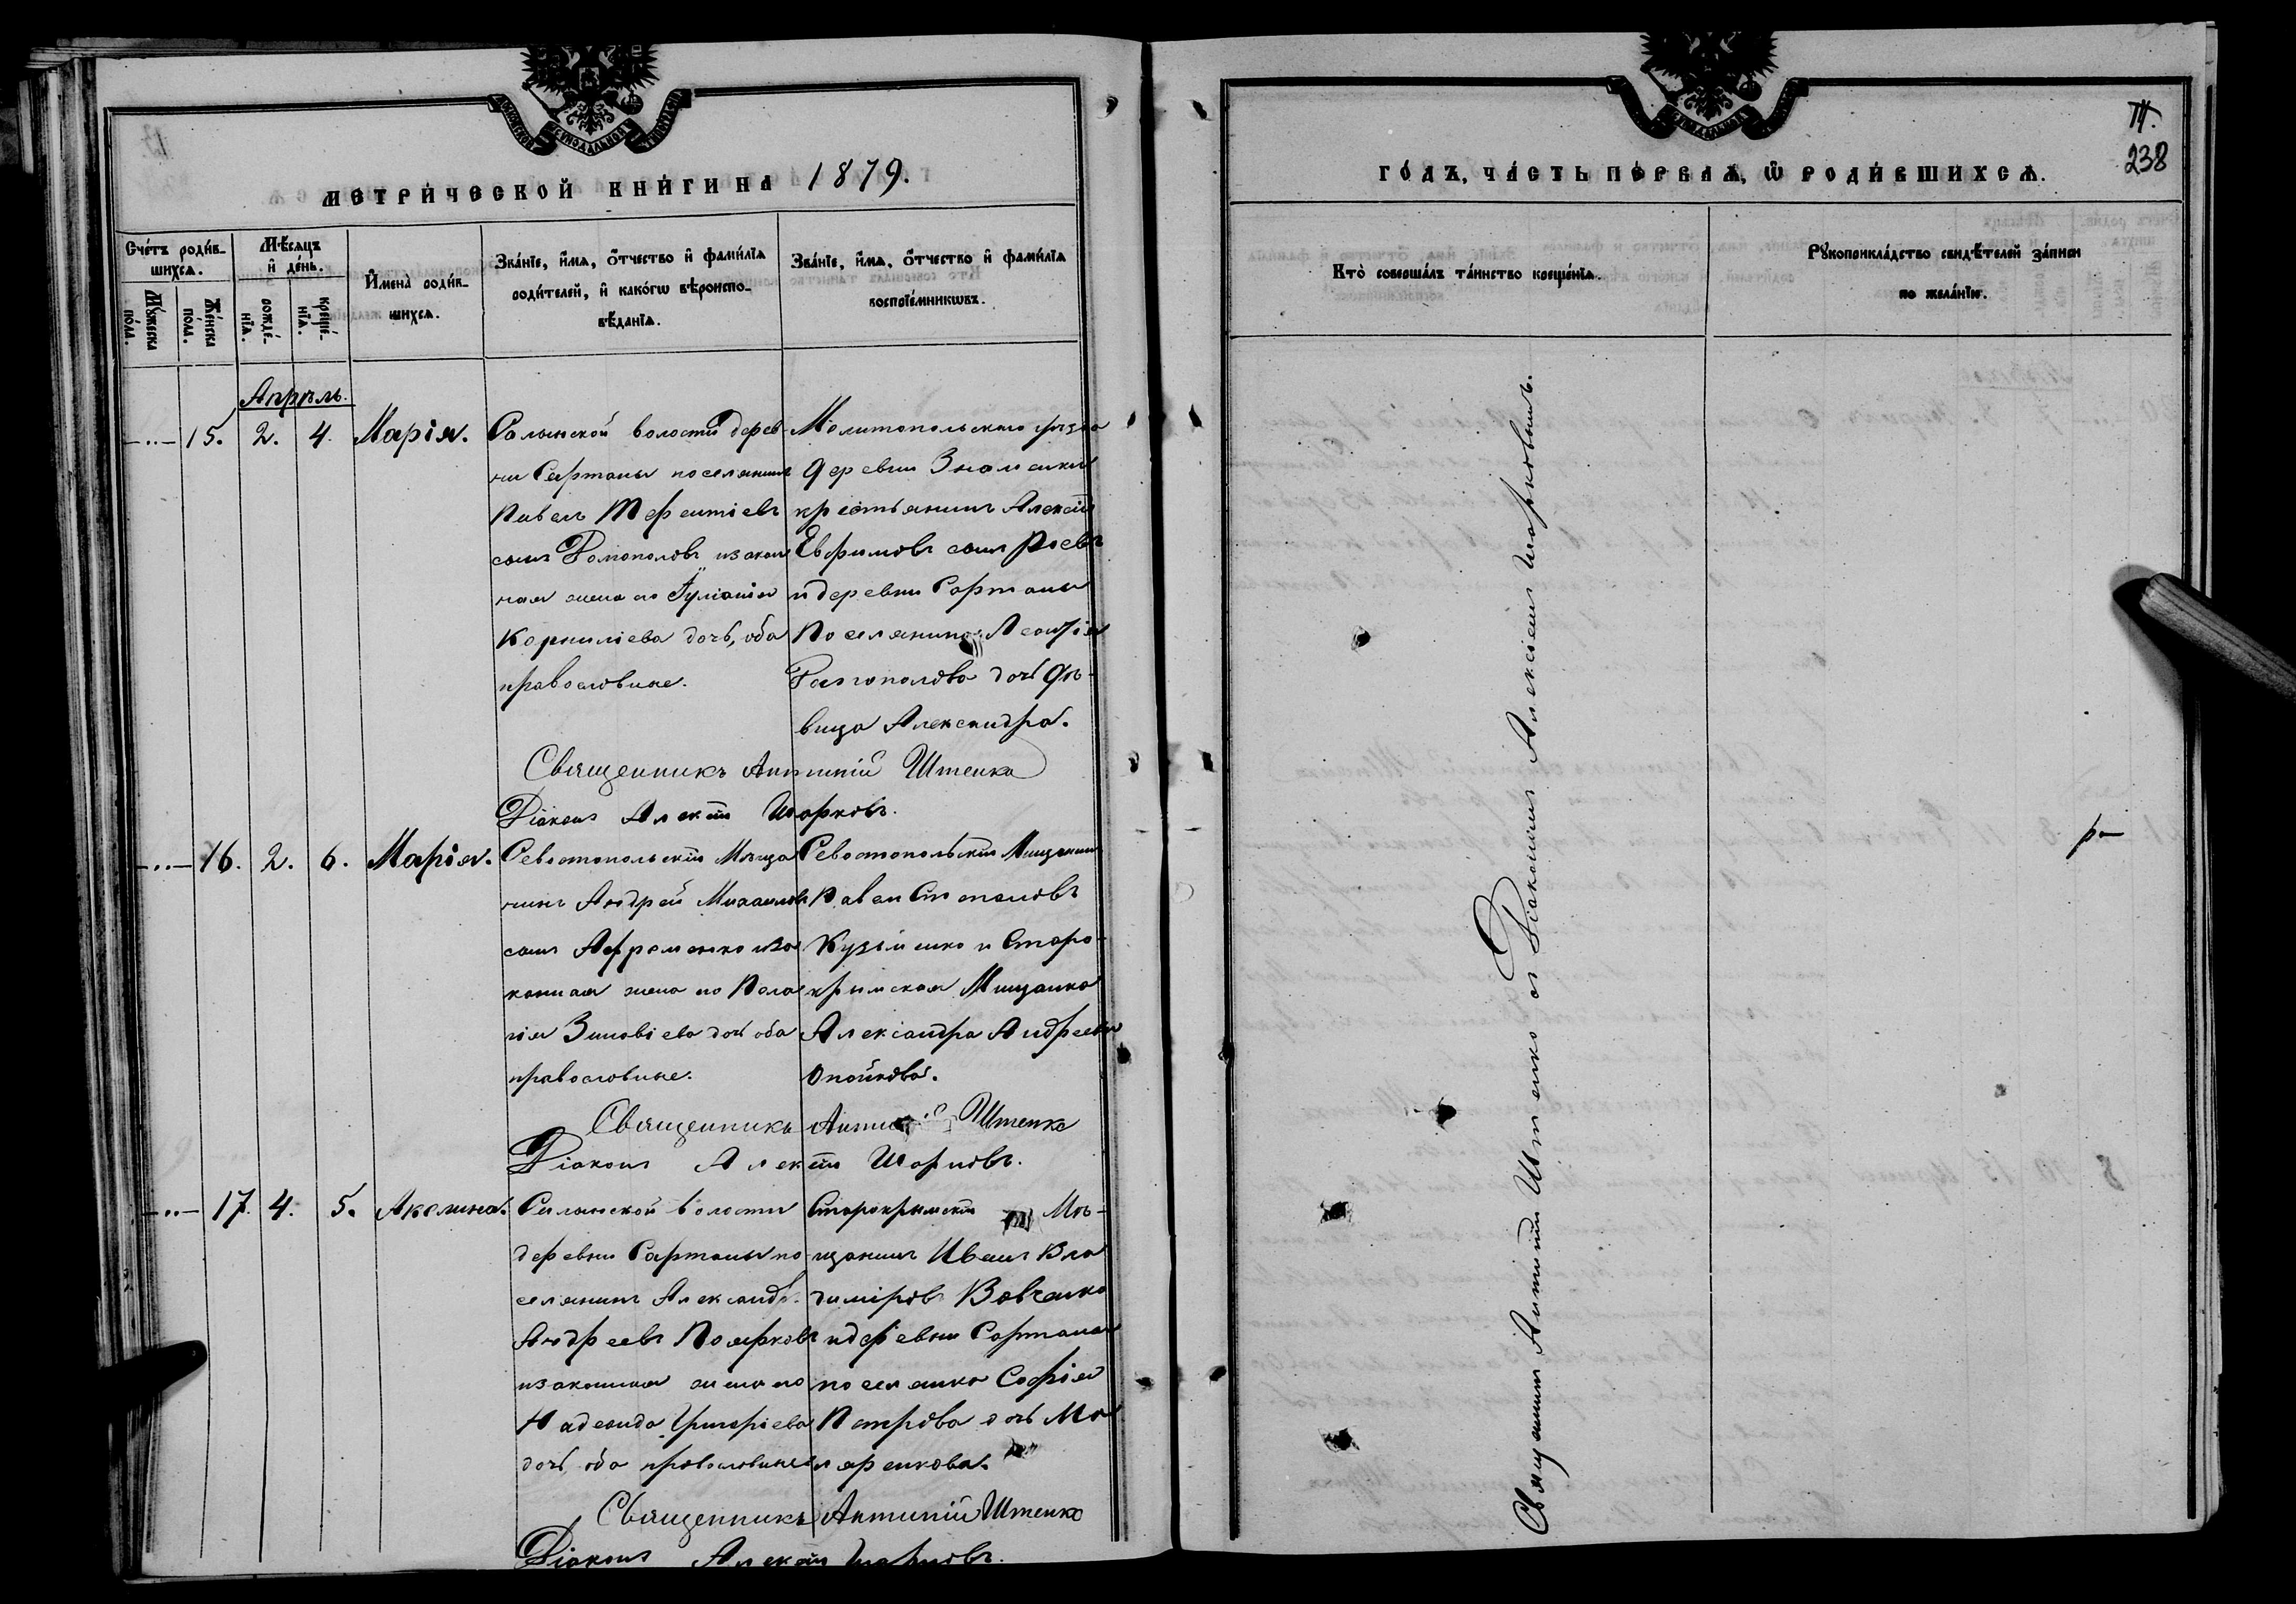 МЕТРИ́ЧЕСКОЙ КНИ́ГИ НА 1879.
Сче́тъ роди́в-
шихсѧ.
Мꙋ́жеска
по́ла.
Же́нска
по́ла.
Мѣ́сѧцъ
и҆ де́нь.
рожде́-
нїѧ.
креще́-
нїѧ.
И҆мена̀ роди́в-
шихсѧ.
Зва́нїе, и҆́мѧ, ѻ҆́тчество и҆ фами́лїѧ
роди́телей, и҆ како́гѡ вѣроиспо-
вѣ́данїѧ.
Зва́нїе, и҆́мѧ, ѻ҆́тчество и҆ фами́лїѧ
воспрїе́мникѡвъ.
Апрѣль.
15. 2. 4. Марія.
Салынской волости дерев-
ни Сартаны поселянинъ
Павелъ Терентіевъ
сынъ Папополовъ и закон
ная жена его Іуліанія
Корниліева дочь, оба
православные.
Мелитопольскаго уѣзда
деревни Знаменки
крестьянинъ Алексій
Евфимовъ сынъ
и деревни Сартаны
Поселянина Леонтія
Папополова дочь дѣ-
вица Александра.
Священникъ Антипій Штенко
Діаконъ Алексій Шарковъ.
16. 2. 6. Марія.
Севастопольскій Мѣща
нинъ Андрей Михаиловъ
сынъ Ефременко и за
конная жена его Пела
гія Зиновіева дочь оба
православные.
Севастопольскій Мищанинъ
Павелъ Степановъ
Кузьменко и Старо-
крымская Мищанка
Александра Андреева
Опойкова.
Священникъ Антипій Штенко
Діаконъ Алексій Шарковъ.
17. 4. 5. Акелина.
Салынской волости
деревни Сартаны по-
селянинъ Александръ
Андреевъ Поярковъ
и законная жена его
Надежда Григоріева
дочь, оба православные
Старокрымскій Мѣ-
щанинъ Иванъ Вла
диміровъ Вовченко
и деревни Сартаны
поселянка Софія
Петрова дочь Ма
ляренкова.
Священникъ Антипій Штенко
Діаконъ Алексій Шарковъ.
238
ГО́ДЪ, ЧА́СТЬ ПЕ́РВАѦ, Ѡ҆ РОДИ́ВШИХСѦ.
Кто̀ соверша́лъ та́инство креще́нїѧ.
Рꙋкоприкла́дство свидѣ́телей за́писи
по жела́нїю.
Священникъ Антипій Штенко съ Діакономъ Алексіемъ Шарковымъ.